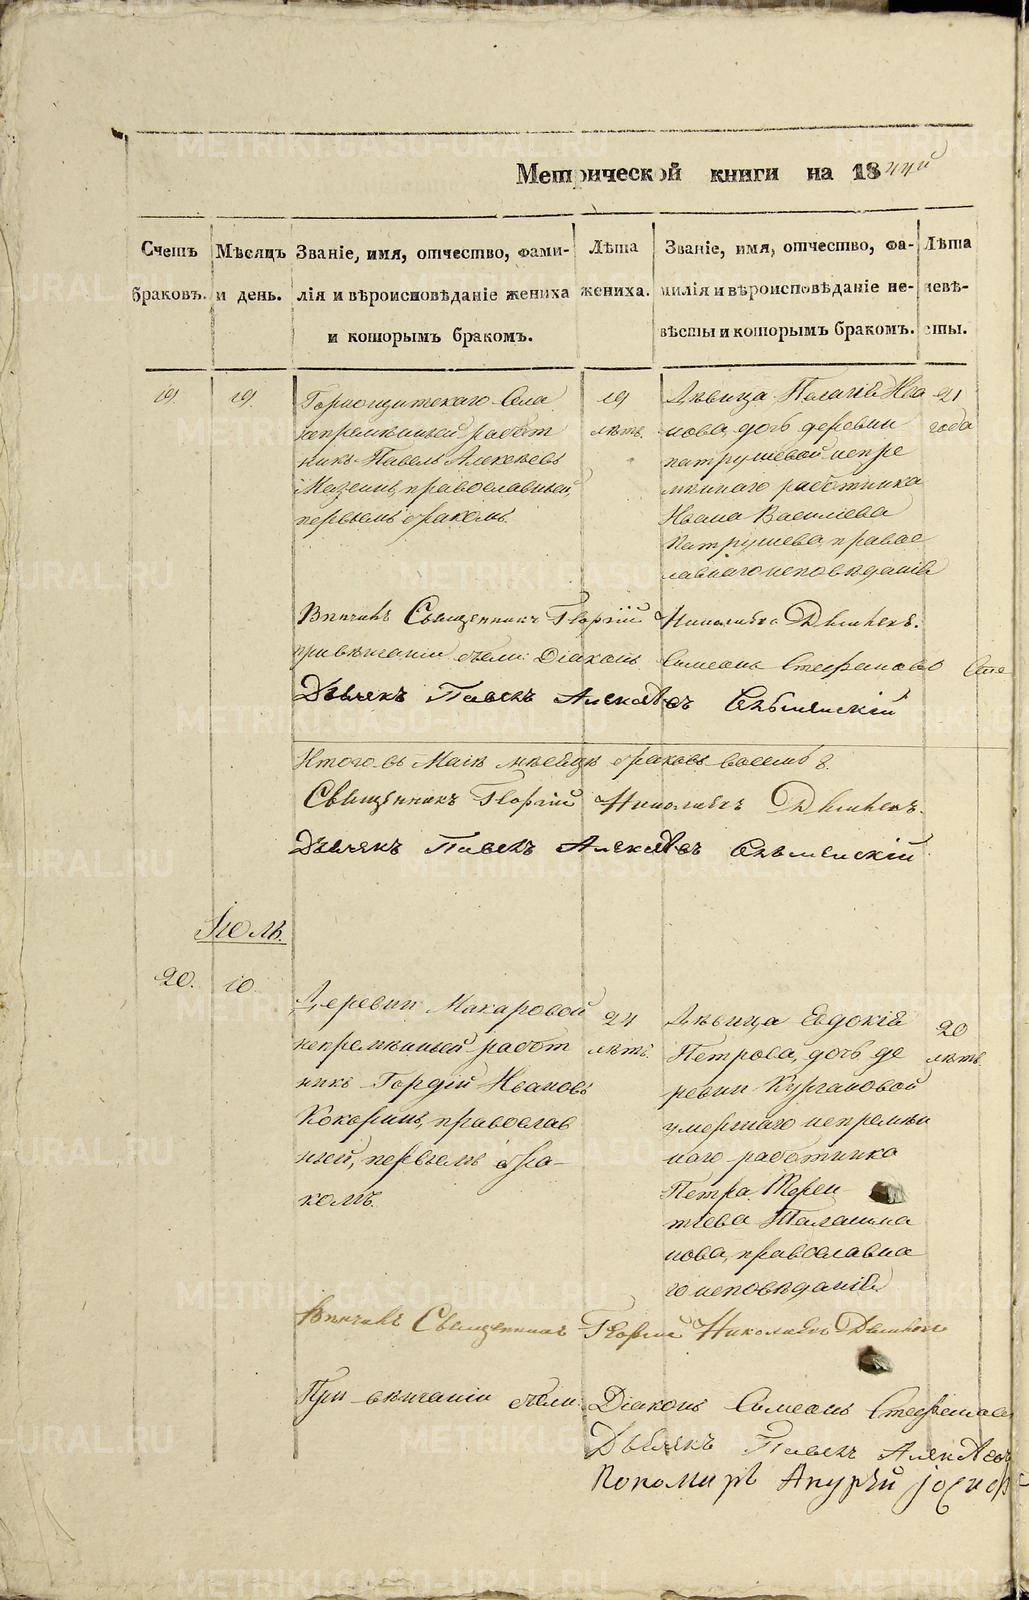 Метрической книги на 1844й
Счетъ браковъ.
Мѣсяцъ и день.
Званіе, имя, отчество, фами-
лія и вѣроисповѣданіе жениха
и которымъ бракомъ.
Лѣта
жениха.
Званіе, имя, отчество, фа-
милія и вѣроисповѣданіе не-
вѣсты и которымъ бракомъ.
Лѣта
невѣ-
сты.
19.
19.
Горнощитскаго Села
непремѣнный работ
никъ Павелъ Алексѣевъ
православный,
первымъ бракомъ.
19
лѣтъ.
Дѣвица Палагія Ива
нова, дочь деревни
патрушевой непре
мѣннаго работника
Ивана Василіева
Патрушева, правос
лавнаго исповѣданія
21
года
Вѣнчалъ Священникъ Георгій Николаевъ
при вѣнчаніи были: Діаконъ Симеонъ Стефановъ
Дьячекъ Павелъ
Итого въ Маіѣ мѣсяцѣ браковъ восемь 8.
Священникъ Георгій Николаевъ
Дьячекъ Павелъ
Іюль.
20.
10.
Деревни Макаровой
непремѣнный работ
никъ Гордій Ивановъ
Кокоринъ, православ
ный, первымъ бра-
комъ.
24
лѣтъ.
Дѣвица Евдокія
Петрова, дочь де
ревни Кургановой
умершаго непремѣн
наго работника
Петра Терен
тіева Талашма
нова, православна
го исповѣданія
20
лѣтъ.
Вѣнчалъ Священникъ Георгій Николаевъ
При вѣнчаніи были: Діаконъ Симеонъ
Дьячекъ Павелъ
Пономарь Андрей
METRIKI.GASU-URAL.RU